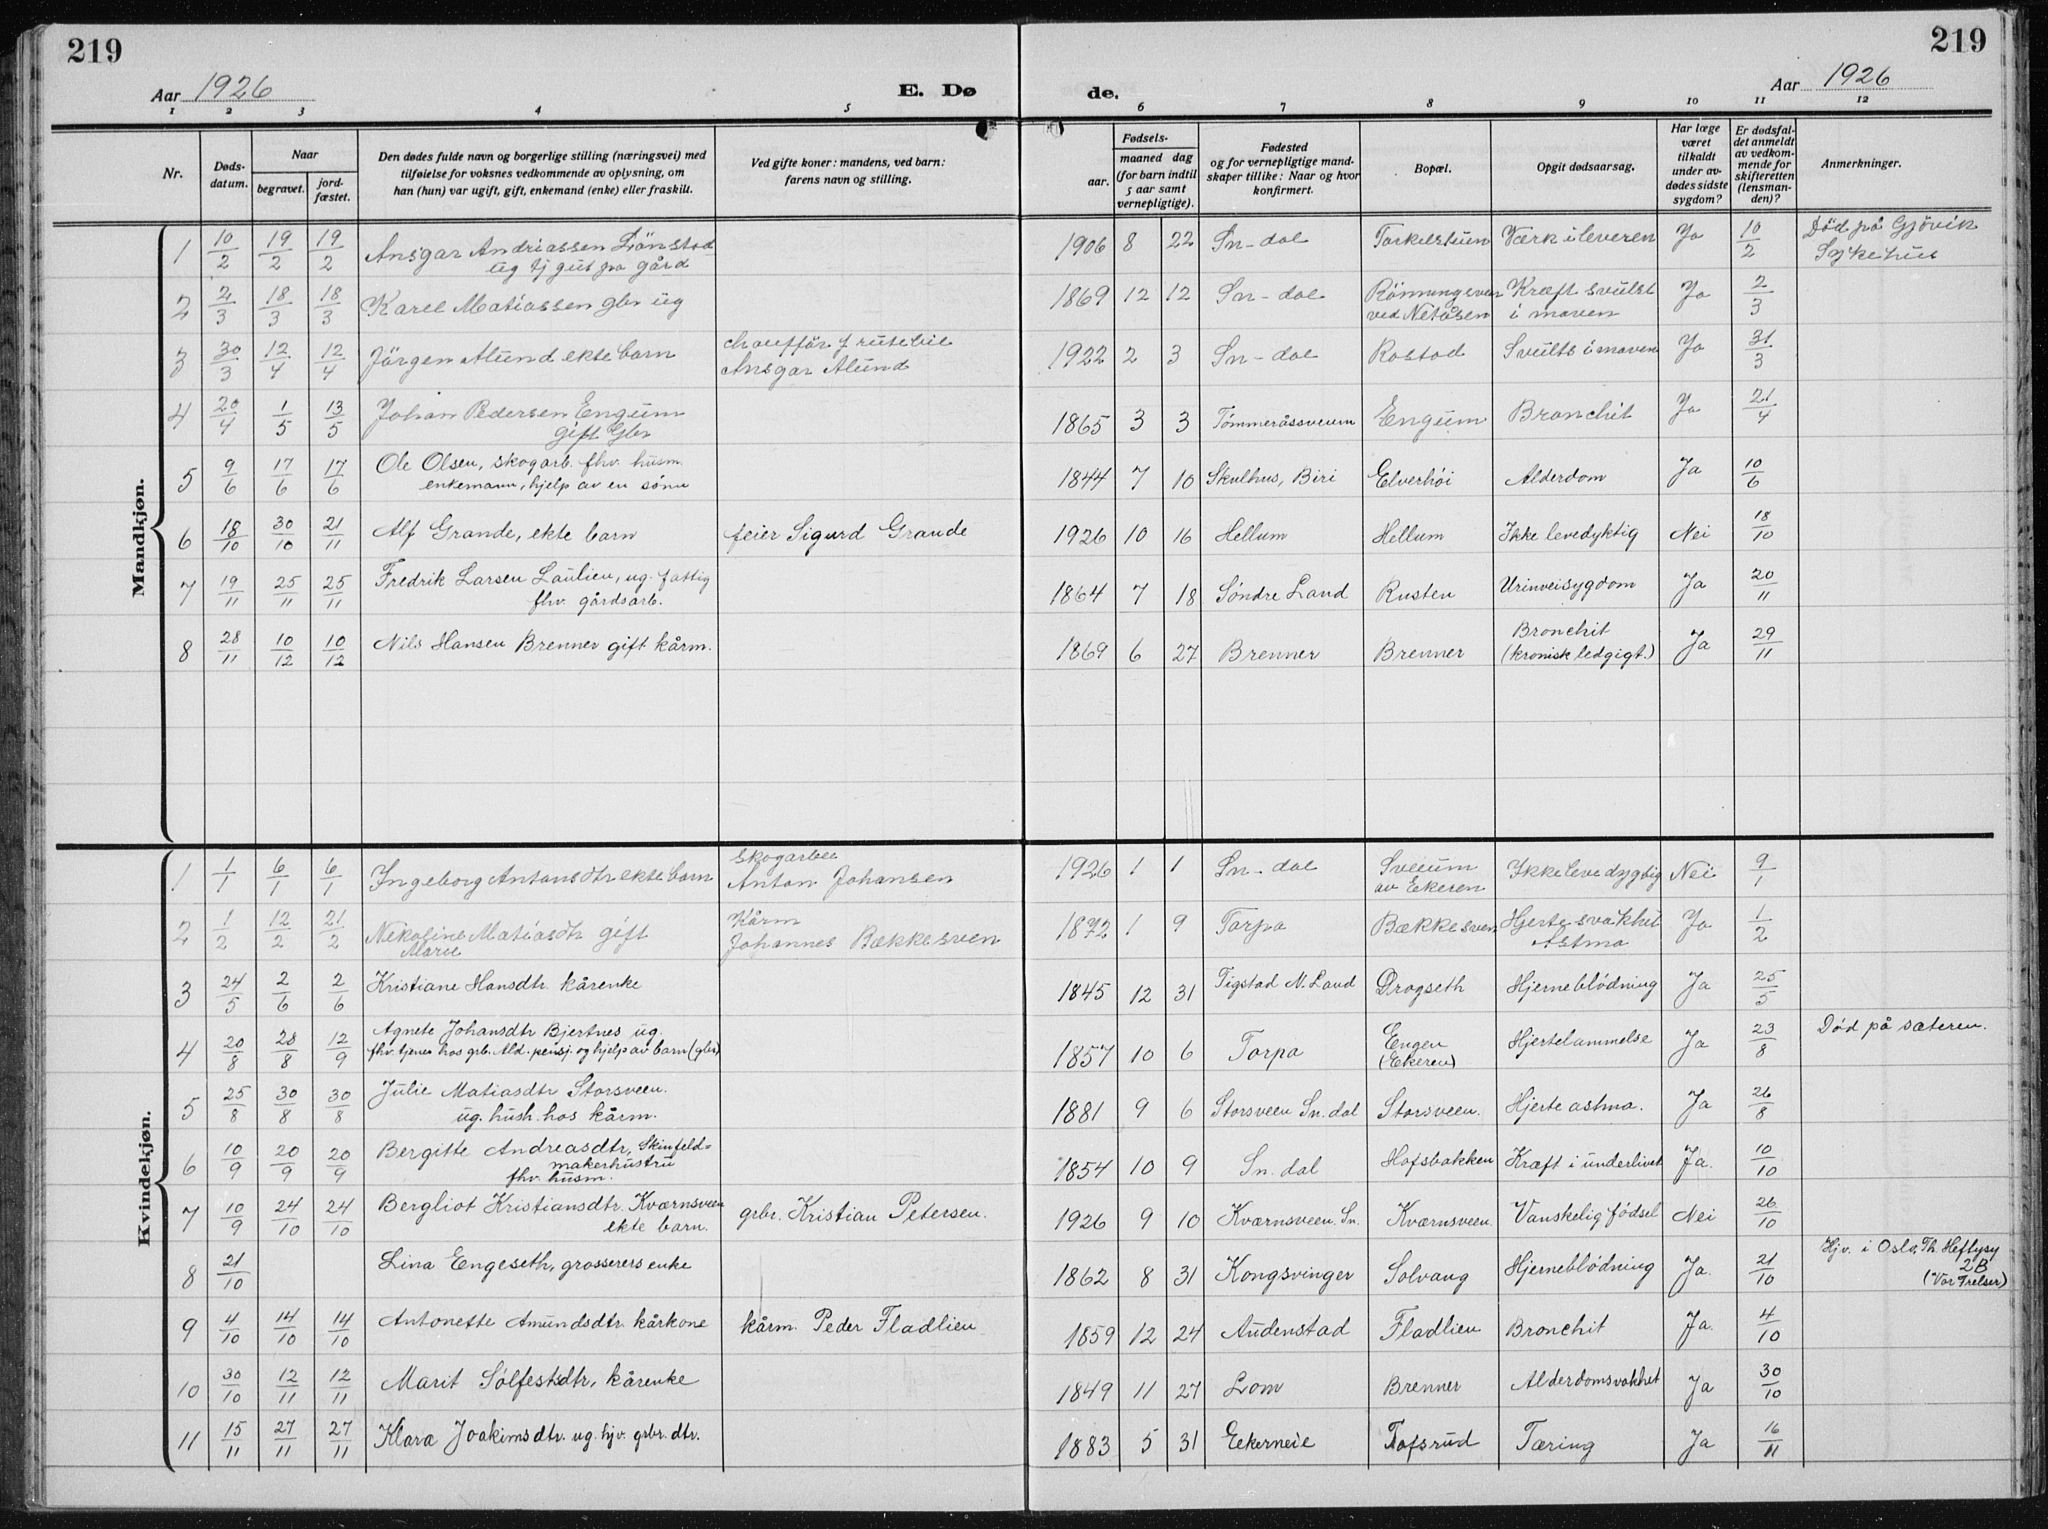 219
219
Aar 1926
E. Dø
de.
Aar 1926
1 2 3 4 5 6 7 8 9 10 11 12
Nr.
Døds-
datum.
Naar
begravet.
jord-
fæstet.
Den dødes fulde navn og borgerlige stilling (næringsvei) med
tilføielse for voksnes vedkommende av oplysning, om
han (hun) var ugift, gift, enkemand (enke) eller fraskilt.
Ved gifte koner: mandens, ved barn:
farens navn og stilling.
Fødsels-
aar.
maaned dag
(for barn indtil
5 aar samt
vernepligtige).
Fødested
og for vernepligtige mand-
skaper tillike: Naar og hvor
konfirmert.
Bopæl.
Opgit dødsaarsag.
Har læge
været
tilkaldt
under av-
dødes sidste
sygdom?
Er dødsfal-
det anmeldt
av vedkom-
mende for
skifteretten
(lensman-
den)?
Anmerkninger.
Mandkjøn.
1 10/2 19/2 19/2 Ansgar Andriassen Lönstad 1906 8 22 Sn-dal Torkelstuen Værk i leveren Ja 10/2 Död på Gjövik
ug tj gut pa gård Sykehus
2 2/3 18/3 18/3 Karel Matiassen gbr ug 1869 12 12 Sn-dal Rönningsven Kræft svulst Ja 2/3
ved Netåsen i maven
3 30/3 12/4 12/4 Jörgen Alund ekte barn chaufför f rutebil 1922 2 3 Sn-dal Rostad Svults i maven Ja 31/3
Ansgar Alund
4 20/4 1/5 13/5 Johan Pedersen Engum 1865 3 3 Tömmeråssveum Engum Bronchit Ja 21/4
gift Gbr
5 9/6 17/6 17/6 Ole Olsen, skogarb. fhv. husm. 1844 7 10 Skulhus, Biri Elverhöi Alderdom Ja 10/6
enkemann, hjelp av en sönn
6 18/10 30/10 21/11 Alf Grande, ekte barn feier Sigurd Grande 1926 10 16 Hellum Hellum Ikke levedyktig Nei 18/10
7 19/11 25/11 25/11 Fredrik Larsen Laulien, ug. fattig 1864 7 18 Søndre Land Rusten Urinveisygdom Ja 20/11
fhv. gårdsarb.
8 28/11 10/12 10/12 Nils Hansen Brenner gift kårm. 1869 6 27 Brenner Brenner Bronchit Ja 29/11
(kronisk ledgigt.)
Kvindekjøn.
1 1/1 6/1 6/1 Ingeborg Antonsdtr ekte barn Skogarbei 1926 1 1 Sn-dal Sveum Ikke levedygtig Nei 9/1
Anton Johansen av Ekeren
2 1/2 12/2 21/2 Nekoline Matiasdtr gift Kårm 1872 1 9 Torpa Bækkesven Hjertesvakhet Ja 1/2
Marie Johannes Bækkesven Astma
3 24/5 2/6 2/6 Kristiane Hansdtr. kårenke 1845 12 31 Tigstad N. Land Drogseth Hjerneblödning Ja 25/5
4 20/8 28/8 12/9 Agnete Johansdtr Bjertnes ug. 1857 10 6 Torpa Engen Hjertelammelse Ja 23/8 Död på sæteren.
fhv. tjener hos grb. Ald. pensj. og hjelp av barn (gbr) (Ekeren)
5 25/8 30/8 30/8 Julie Matiasdtr Storsveen. 1881 9 6 Storsveen Sn. dal Storsveen. Hjerte astma. Ja 26/8
ug. hush. hos kårm.
6 10/9 20/9 20/9 Bergitte Andreasdtr, Skinfeld- 1854 10 9 Sn. dal Hofsbakken Kræft i underlivet Ja. 10/10
makerhustru
fhv. husm.
7 10/9 24/10 24/10 Bergliot Kristiansdtr. Kværnsveen grbr. Kristian Petersen. 1926 9 10 Kværnsveen. Sn. Kværnsveen. Vanskelig födsel Nei 26/10
ekte barn.
8 21/10 Lina Engeseth, grosserers enke 1862 8 31 Kongsvinger Solvang Hjerneblödning Ja. 21/10 Hjv. i Oslo, Th. Heftysg
2B
(Vor Frelser)
9 4/10 14/10 14/10 Antonette Amundsdtr. kårkone kårm. Peder Fladlien 1859 12 24 Audenstad Fladlien Bronchit Ja. 4/10
10 30/10 12/11 12/11 Marit Sölfestsdtr, kårenke 1849 11 27 Lom Brenner Alderdomsvakhet Ja 30/10
11 15/11 27/11 27/11 Klara Joakimsdtr. ug. hjv. grbr. dtr. 1883 5 31 Eekerneie Tofsrud Tæring Ja 16/11